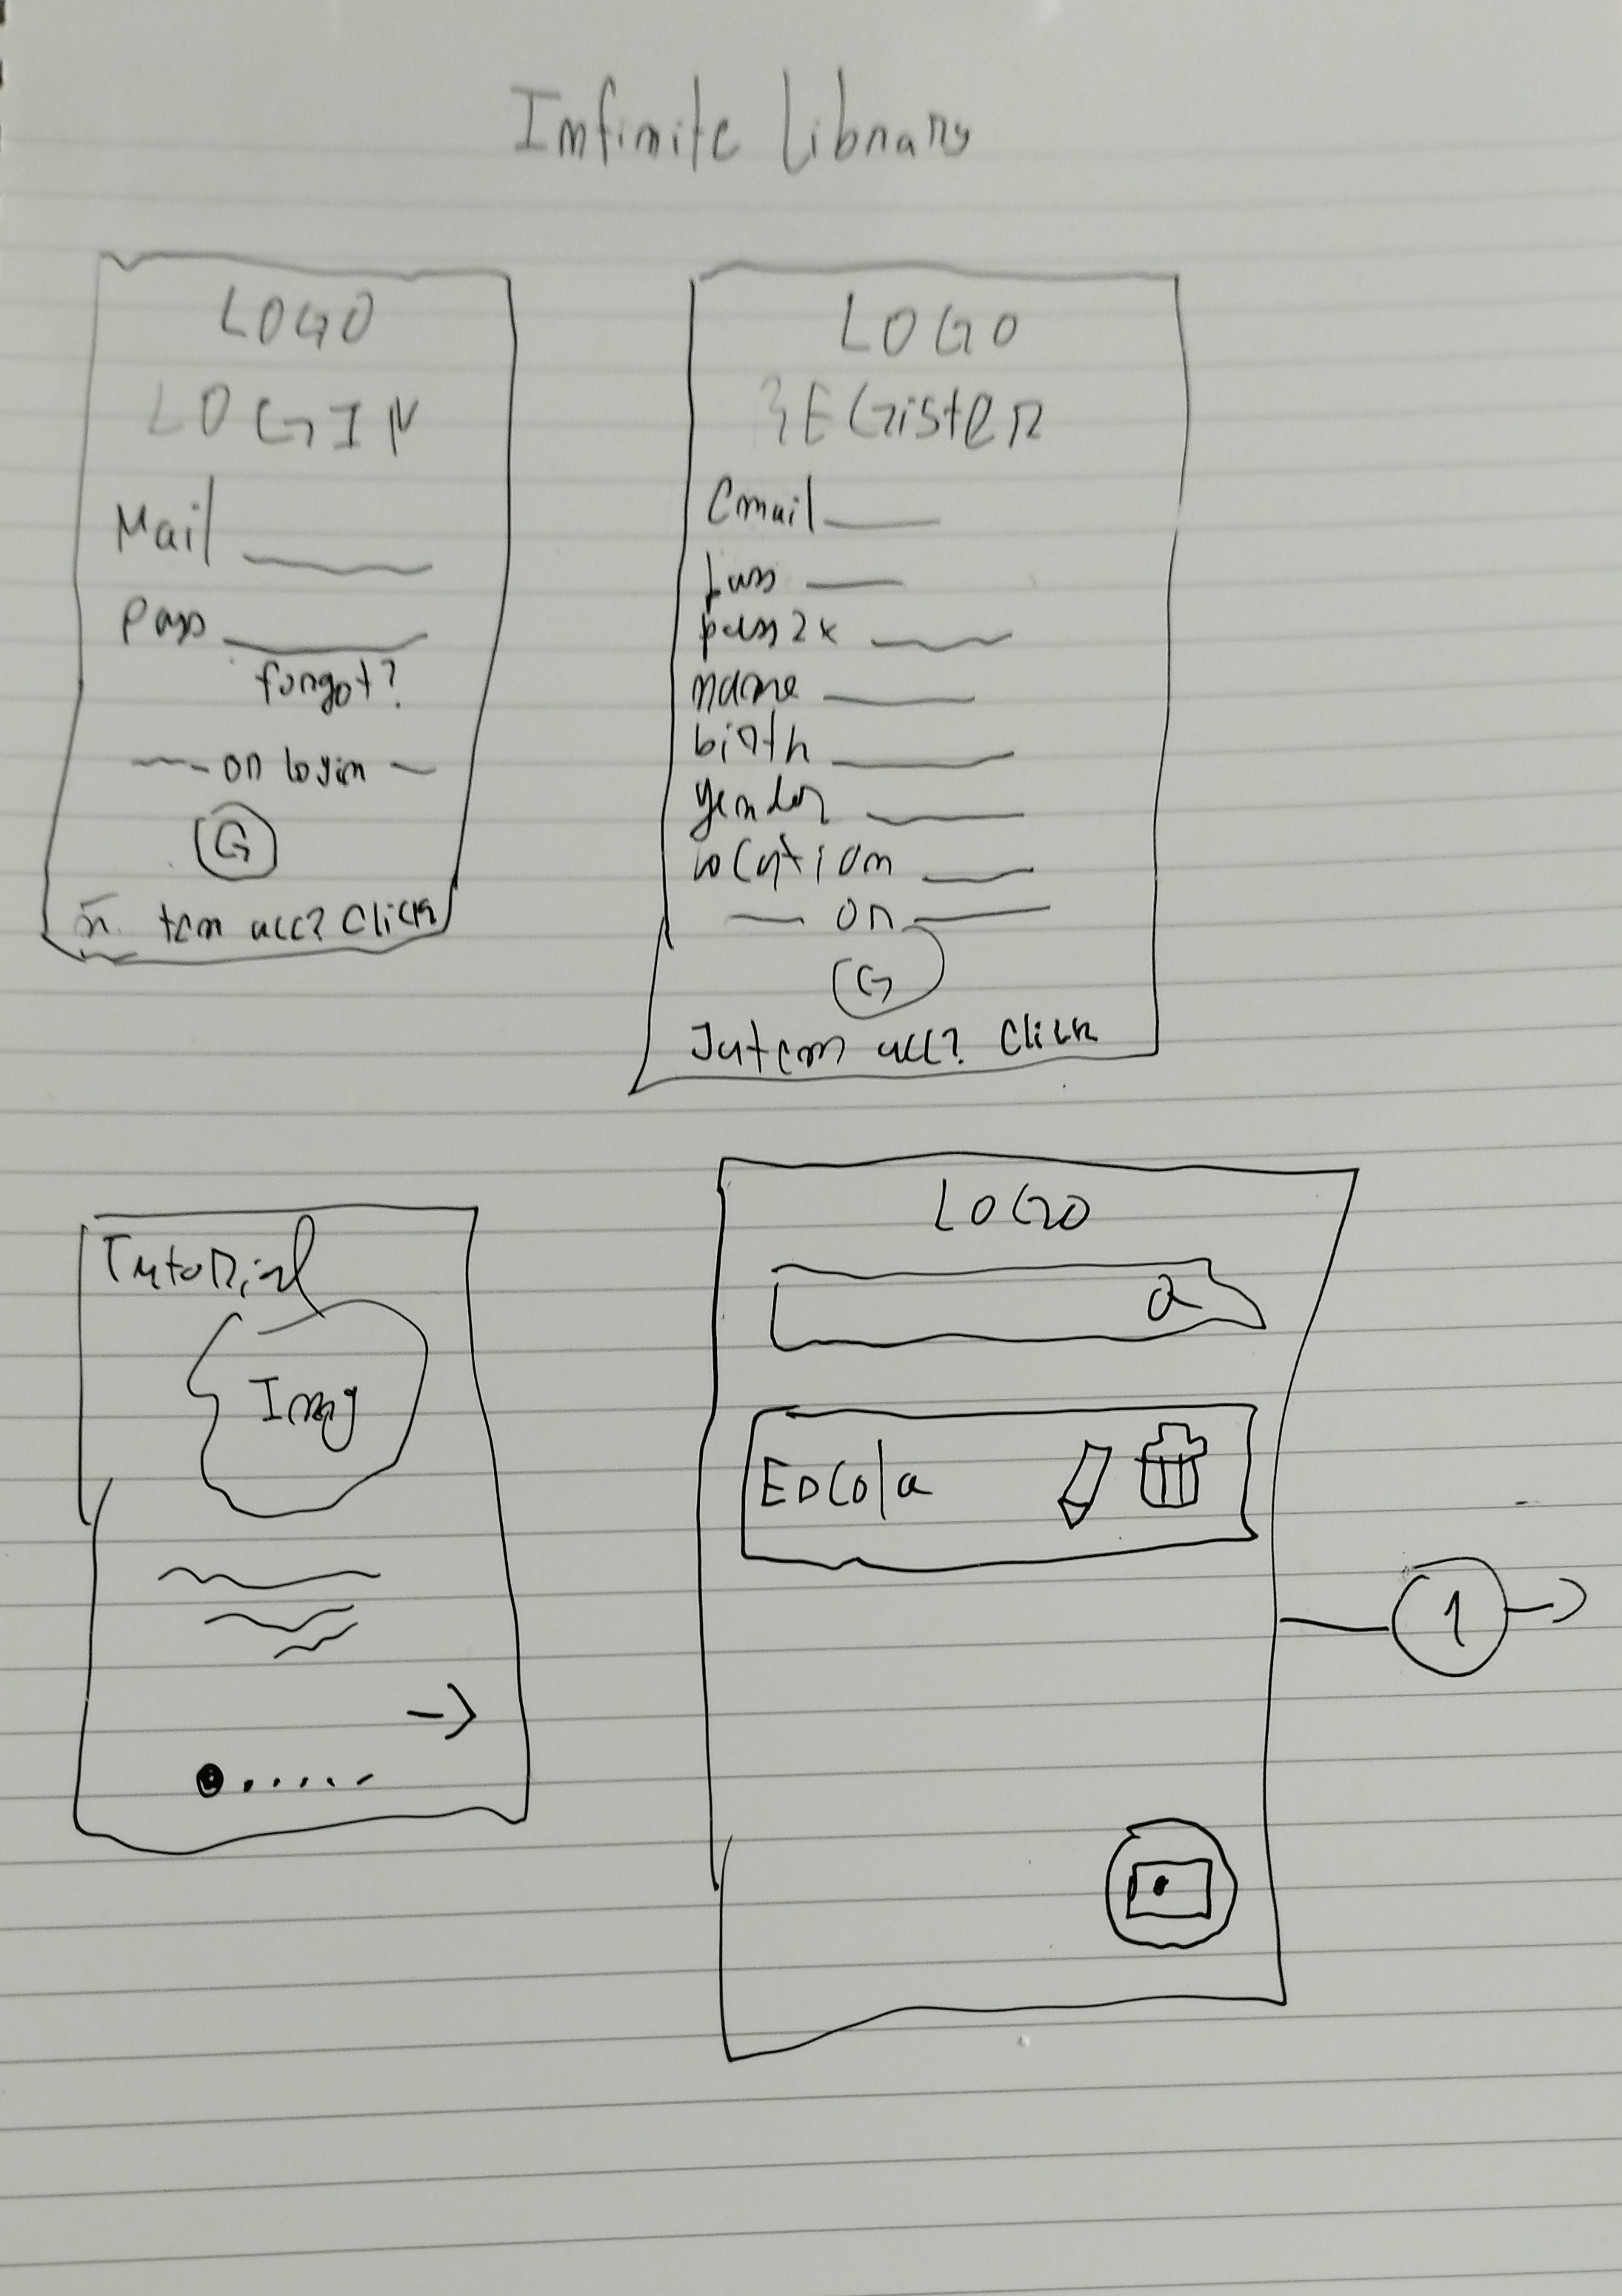 Infinite Library
LOGO
LOGIN
Mail
Pass
forgot?
or login
G
ñ tem acc? Click
LOGO
REGisteR
Email
pass
pass 2x
name
birth
gender
location
or
G
Ja tem acc? Click
TutoRial
Img
LOGO
EScola
1